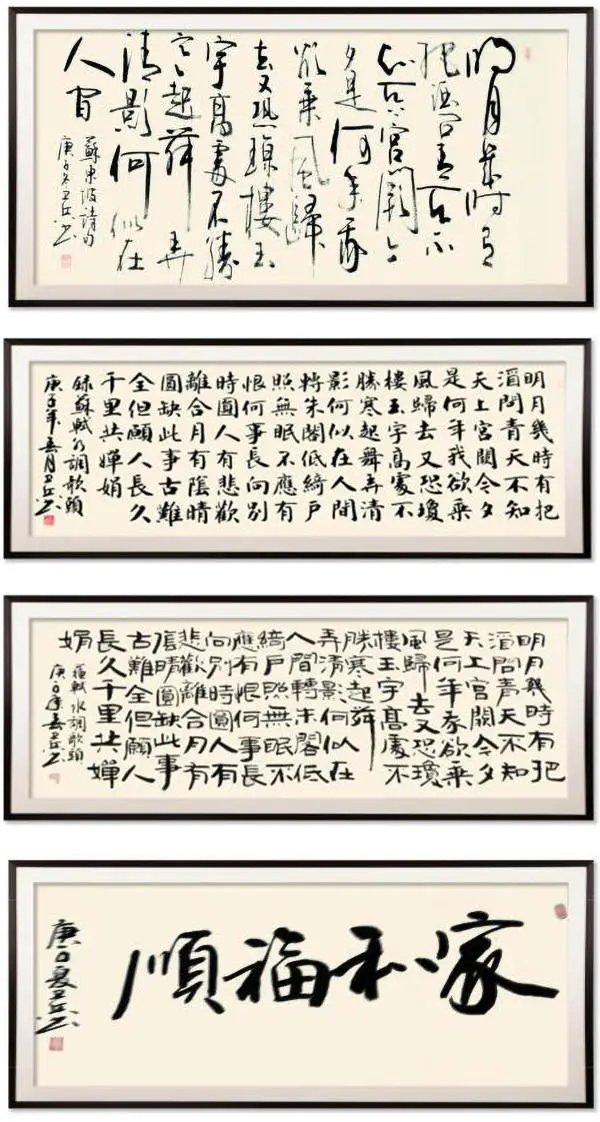 明月幾時有
把酒問青天不
知天上宮闕今
夕是何年我
欲乘風歸
去又恐瓊樓玉
宇高處不勝
寒起舞弄
清影何似在
人間
蘇東坡詩句
庚子冬卫兵书
明月幾時有把
酒問青天不知
天上宮闕今夕
是何年我欲乘
風歸去又恐瓊
樓玉宇高處不
勝寒起舞弄清
影何似在人間
轉朱閣低綺戶
照無眠不應有
恨何事長向別
時圓人有悲歡
離合月有陰晴
圓缺此事古難
全但願人長久
千里共嬋娟
錄蘇軾水調歌頭
庚子年春月卫兵书
明月幾時有把
酒問青天不知
天上宮闕今夕
是何年我欲乘
風歸去又恐瓊
樓玉宇高處不
勝寒起舞
弄清影何似在
人間轉朱閣低
綺戶照無眠不
應有恨何事長
向別時圓人有
悲歡離合月有
陰晴圓缺此事
古難全但願人
長久千里共嬋
娟
蘇軾水調歌頭
庚子年春卫兵书
家和福順
庚子夏卫兵书